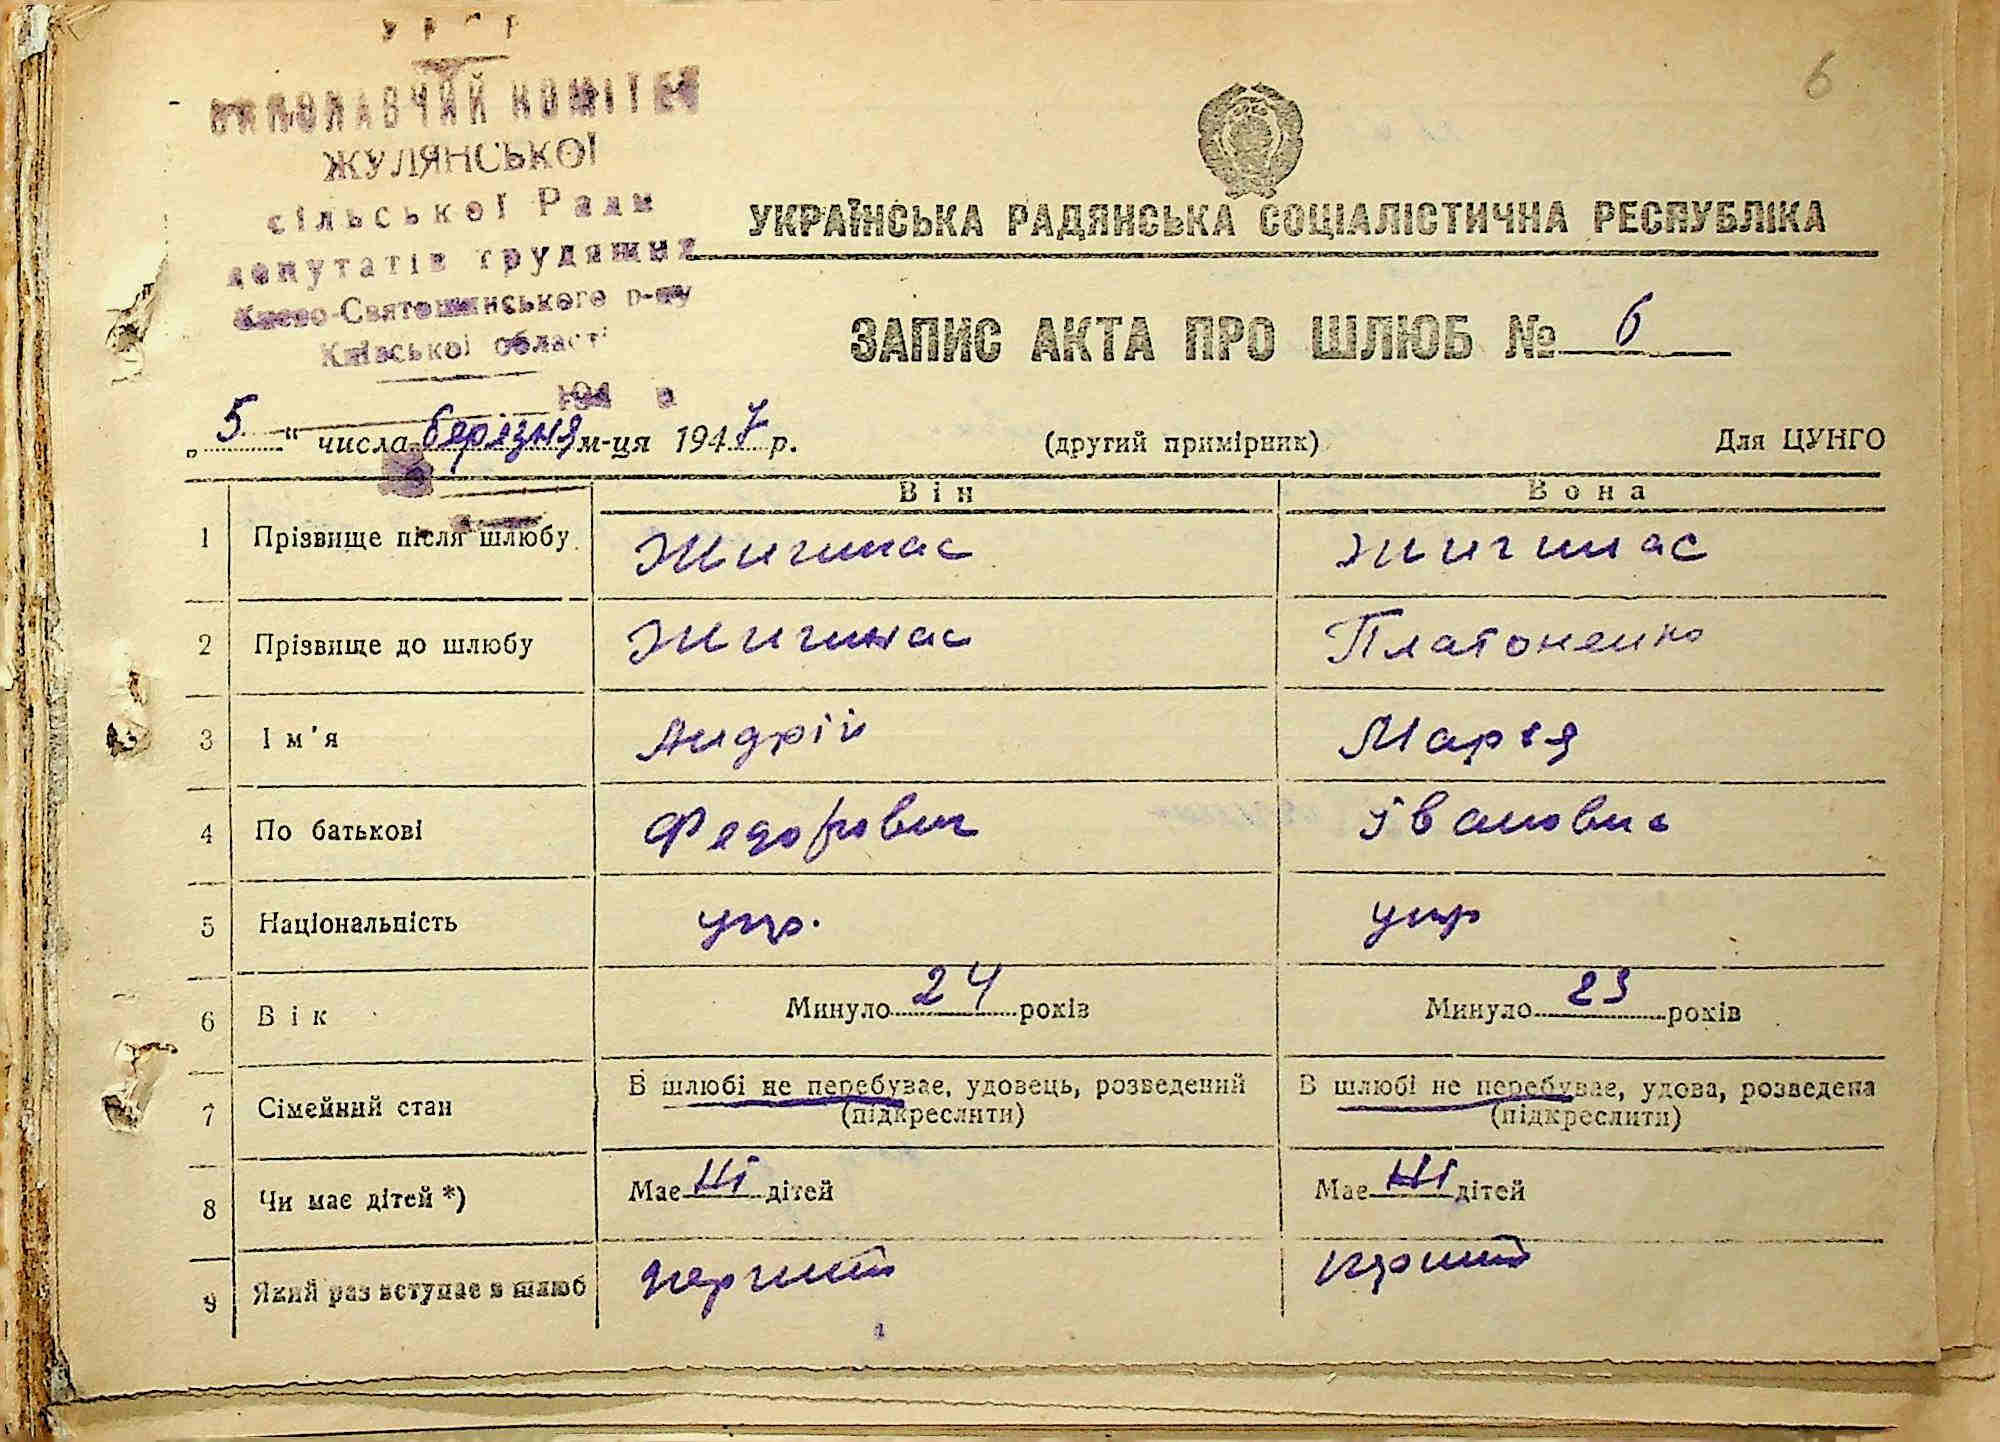 6
УРСР
ВИКОНАВЧИЙ КОМІТЕТ
ЖУЛЯНСЬКОЇ
сільської Ради
депутатів трудящих
Києво-Святошинського р-ну
Київської області
194 р
УКРАЇНСЬКА РАДЯНСЬКА СОЦІАЛІСТИЧНА РЕСПУБЛІКА
ЗАПИС АКТА ПРО ШЛЮБ № 6
„5“ числа березня м-ця 1947 р. (другий примірник) Для ЦУНГО
Він Вона
1 Прізвище після шлюбу Жигинас Жигинас
2 Прізвище до шлюбу Жигинас Платоненко
3 Ім'я Андрій Марія
4 По батькові Федорович Івановна
5 Національність укр. укр
6 Вік Минуло 24 років Минуло 23 років
7 Сімейний стан В шлюбі не перебуває, удовець, розведений (підкреслити) В шлюбі не перебуває, удова, розведена (підкреслити)
8 Чи має дітей *) Має ні дітей Має ні дітей
9 Який раз вступає в шлюб перший перший